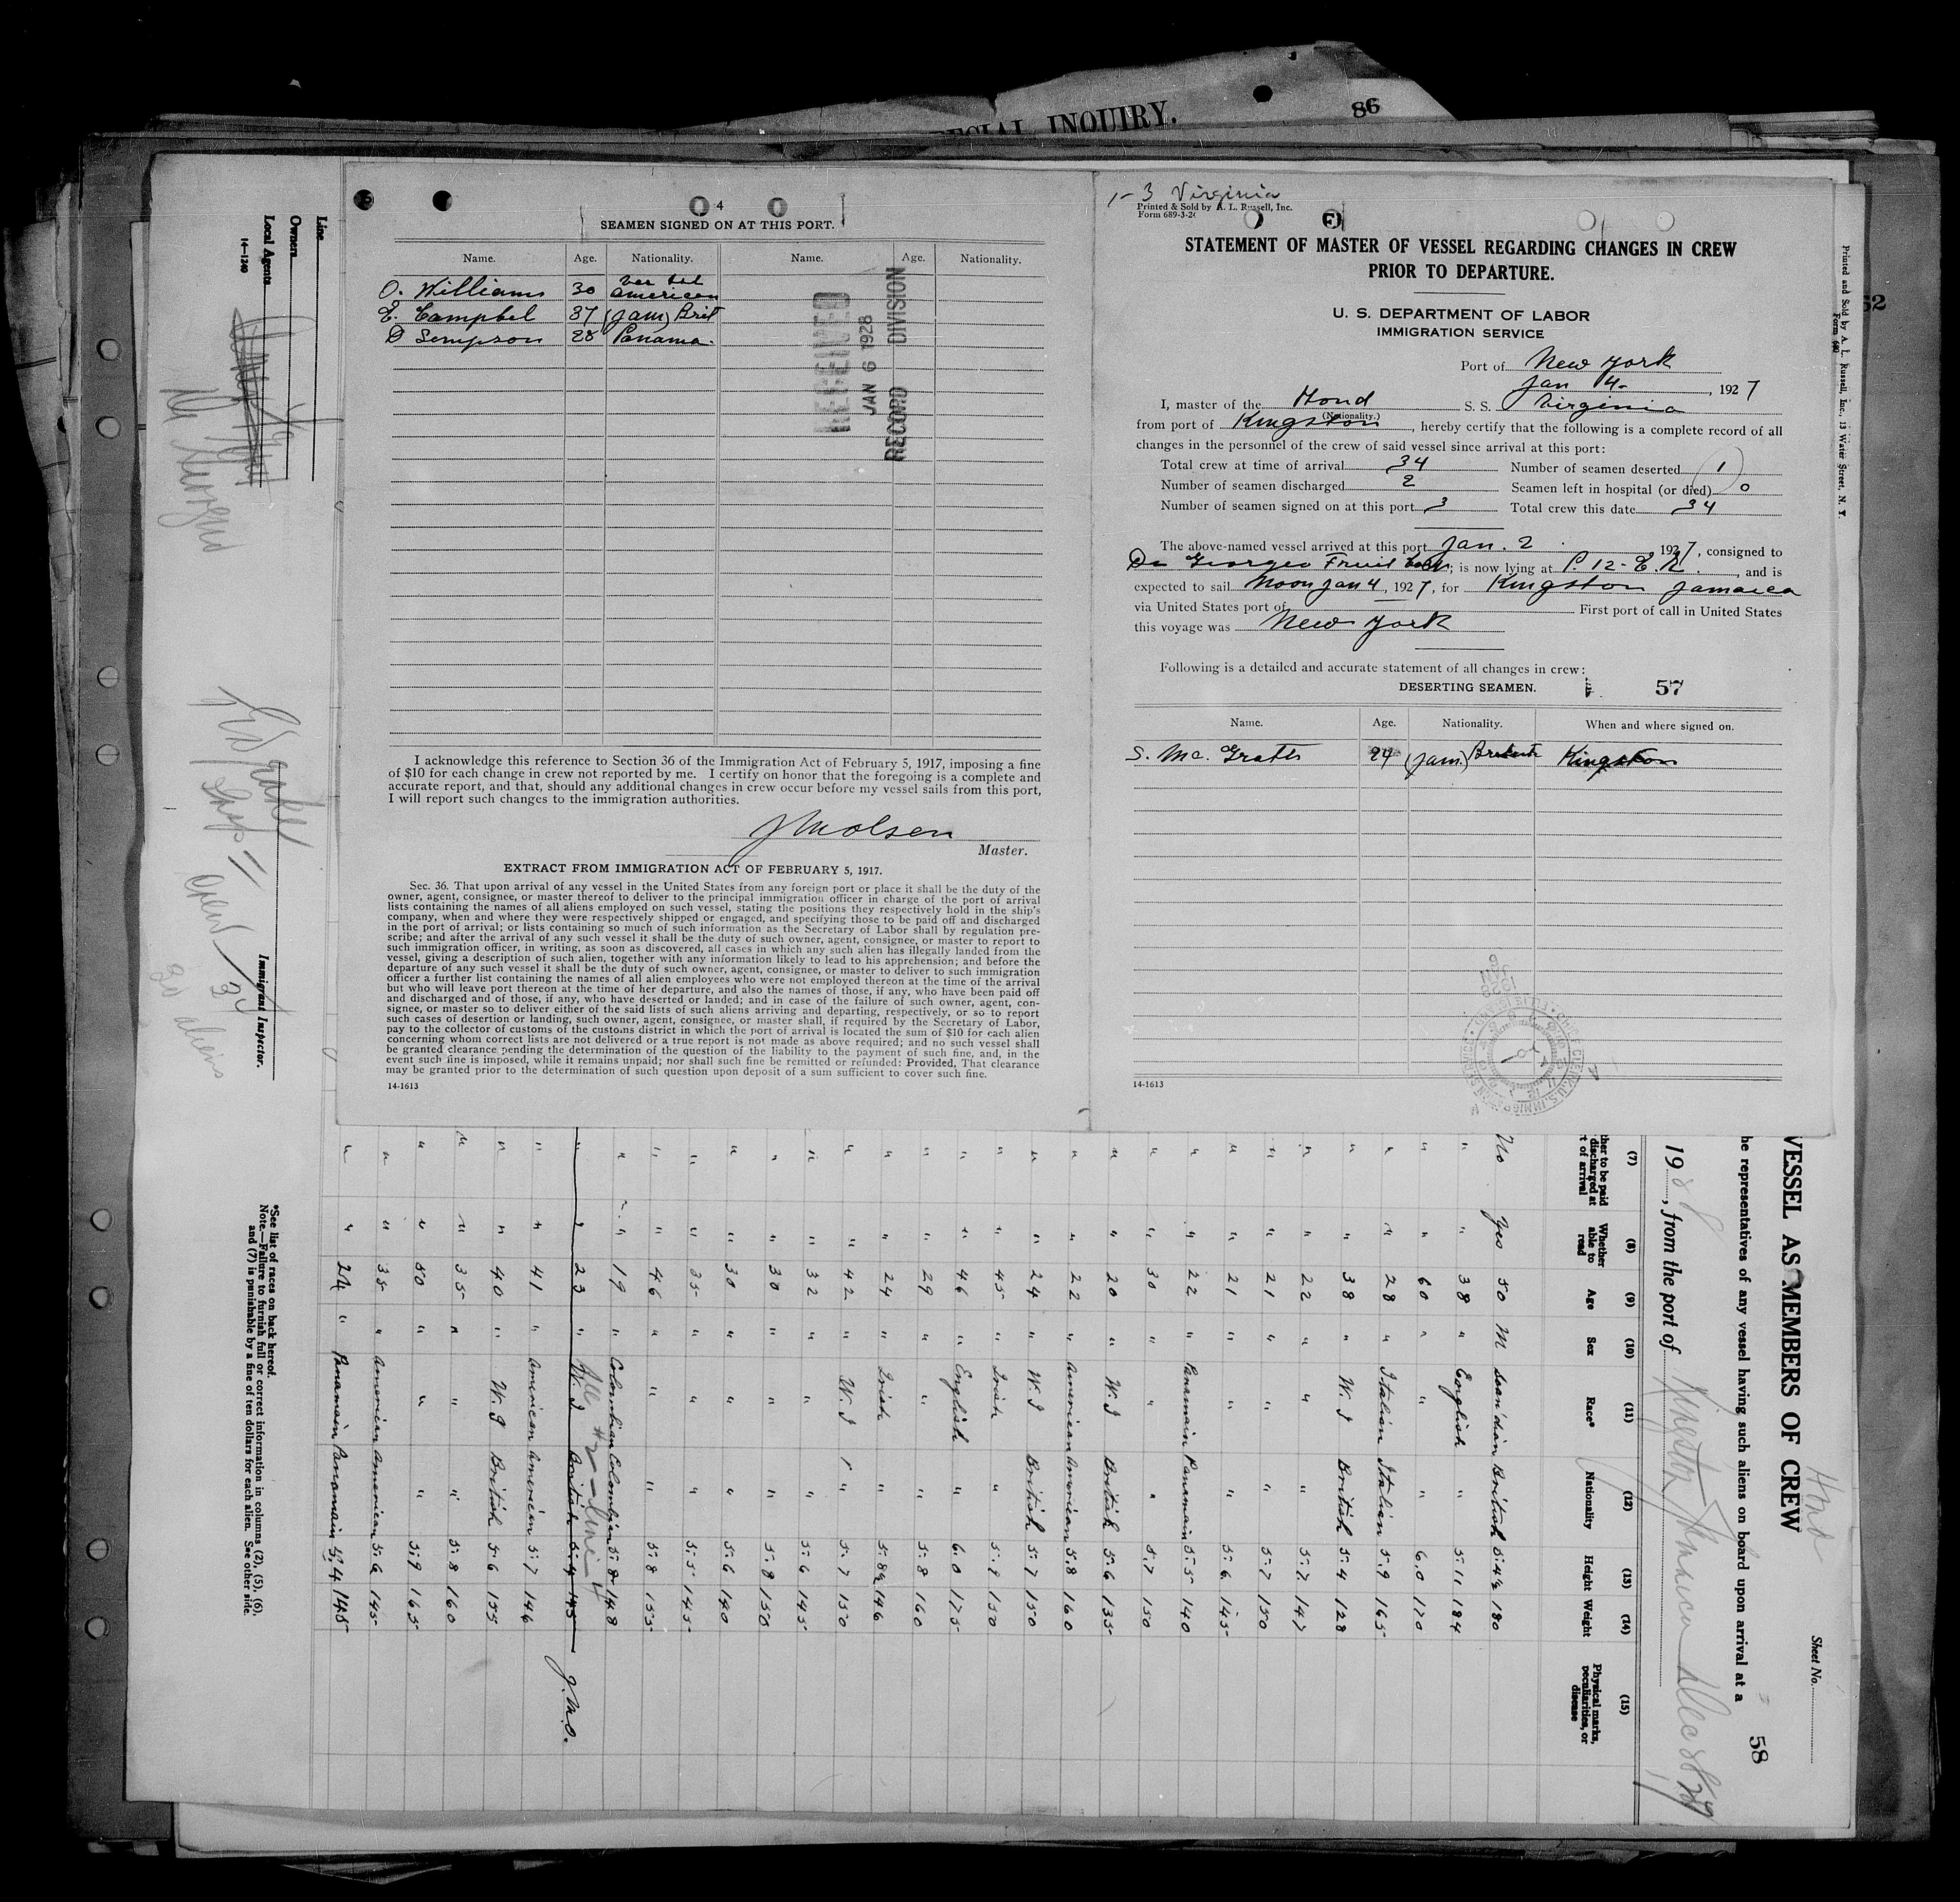 SPECIAL INQUIRY.
86
52
4
SEAMEN SIGNED ON AT THIS PORT.
Name. Age. Nationality. Name. Age. Nationality.
O. Williams 30 American
E. Campbel 37 (Jam) Brit
D Simpson 28 Panama.
RECEIVED
JAN 6 1928
RECORD DIVISION
I acknowledge this reference to Section 36 of the Immigration Act of February 5, 1917, imposing a fine
of $10 for each change in crew not reported by me. I certify on honor that the foregoing is a complete and
accurate report, and that, should any additional changes in crew occur before my vessel sails from this port,
I will report such changes to the immigration authorities.
J M Olsen
Master.
EXTRACT FROM IMMIGRATION ACT OF FEBRUARY 5, 1917.
Sec. 36. That upon arrival of any vessel in the United States from any foreign port or place it shall be the duty of the
owner, agent, consignee, or master thereof to deliver to the principal immigration officer in charge of the port of arrival
lists containing the names of all aliens employed on such vessel, stating the positions they respectively hold in the ship's
company, when and where they were respectively shipped or engaged, and specifying those to be paid off and discharged
in the port of arrival; or lists containing so much of such information as the Secretary of Labor shall by regulation pre-
scribe; and after the arrival of any such vessel it shall be the duty of such owner, agent, consignee, or master to report to
such immigration officer, in writing, as soon as discovered, all cases in which any such alien has illegally landed from the
vessel, giving a description of such alien, together with any information likely to lead to his apprehension; and before the
departure of any such vessel it shall be the duty of such owner, agent, consignee, or master to deliver to such immigration
officer a further list containing the names of all alien employees who were not employed thereon at the time of the arrival
but who will leave port thereon at the time of her departure, and also the names of those, if any, who have been paid off
and discharged and of those, if any, who have deserted or landed; and in case of the failure of such owner, agent, con-
signee, or master so to deliver either of the said lists of such aliens arriving and departing, respectively, or so to report
such cases of desertion or landing, such owner, agent, consignee, or master shall, if required by the Secretary of Labor,
pay to the collector of customs of the customs district in which the port of arrival is located the sum of $10 for each alien
concerning whom correct lists are not delivered or a true report is not made as above required; and no such vessel shall
be granted clearance pending the determination of the question of the liability to the payment of such fine, and, in the
event such fine is imposed, while it remains unpaid; nor shall such fine be remitted or refunded: Provided, That clearance
may be granted prior to the determination of such question upon deposit of a sum sufficient to cover such fine.
14-1613
1-3 Virginia
Printed & Sold by A. L. Russell, Inc.
Form 689-3-26
STATEMENT OF MASTER OF VESSEL REGARDING CHANGES IN CREW
PRIOR TO DEPARTURE.
U. S. DEPARTMENT OF LABOR
IMMIGRATION SERVICE
Port of New York
Jan 4- , 1927
I, master of the Hond S. S. Virginia
(Nationality.)
from port of Kingston, hereby certify that the following is a complete record of all
changes in the personnel of the crew of said vessel since arrival at this port:
Total crew at time of arrival 34 Number of seamen deserted 1
Number of seamen discharged 2 Seamen left in hospital (or died) 0
Number of seamen signed on at this port 3 Total crew this date 34
The above-named vessel arrived at this port Jan. 2 1927, consigned to
Di Georgeo Fruit; is now lying at P. 12- E. R., and is
expected to sail Noon Jan 4, 1927, for Kingston Jamaica
via United States port of First port of call in United States
this voyage was New York
Following is a detailed and accurate statement of all changes in crew:
DESERTING SEAMEN.
57
Name. Age. Nationality. When and where signed on.
S. Mc. Grath 24 (Jam.) British Kingston
14-1613
Printed and Sold by A. L. Russell, Inc., 13 Water Street, N. Y.
Form 680
Line
Owners
Local Agents
14-1240
Immigrant Inspector.
Crew 34
30 aliens
*See list of races on back hereof.
Note.—Failure to furnish full or correct information in columns (2), (5), (6),
and (7) is punishable by a fine of ten dollars for each alien. See other side.
Sheet No.
Hond
VESSEL AS MEMBERS OF CREW
he representatives of any vessel having such aliens on board upon arrival at a
58
19 , from the port of Kingston Jamaica Dec 28/27
(7) (8) (9) (10) (11) (12) (13) (14) (15)
Whether able to read Age Sex Race* Nationality Height Weight Physical marks, peculiarities, or disease
No Yes 50 M Scan'dian British 5.4½ 180
" " 38 " English " 5.11 184
" " 60 " " " 6.0 170
" " 28 " Italian Italian 5.9 165
" " 38 " W. I British 5.4 128
" " 22 " " " 5.7 147
" " 21 " " " 5.7 150
" " 21 " " " 5.6 145
" " 22 " Panamain Panamain 5.5 140
" " 30 " " " 5.7 150
" " 20 " W. I British 5.6 135
" " 22 " American American 5.8 160
" " 24 " W. I British 5.7 150
" " 45 " Irish " 5.9 150
" " 46 " English " 6.0 175
" " 29 " " " 5.8 160
" " 24 " Irish " 5.8½ 146
" " 42 " W. I " 5.7 150
" " 32 " " " 5.6 145
" " 30 " " " 5.8 150
" " 30 " " " 5.6 140
" " 35 " " " 5.5 145
" " 46 " " " 5.8 155
" " 19 " Colombian Colombian 5.8 148
" " 23 " W. I British 5.9 145 J.M.O.
" " 41 " American American 5.7 146
" " 40 " W. I British 5.6 155
" " 35 " " " 5.8 160
" " 50 " " " 5.9 165
" " 35 " American American 5.6 145
" " 24 " Panamain Panamain 5.4 145